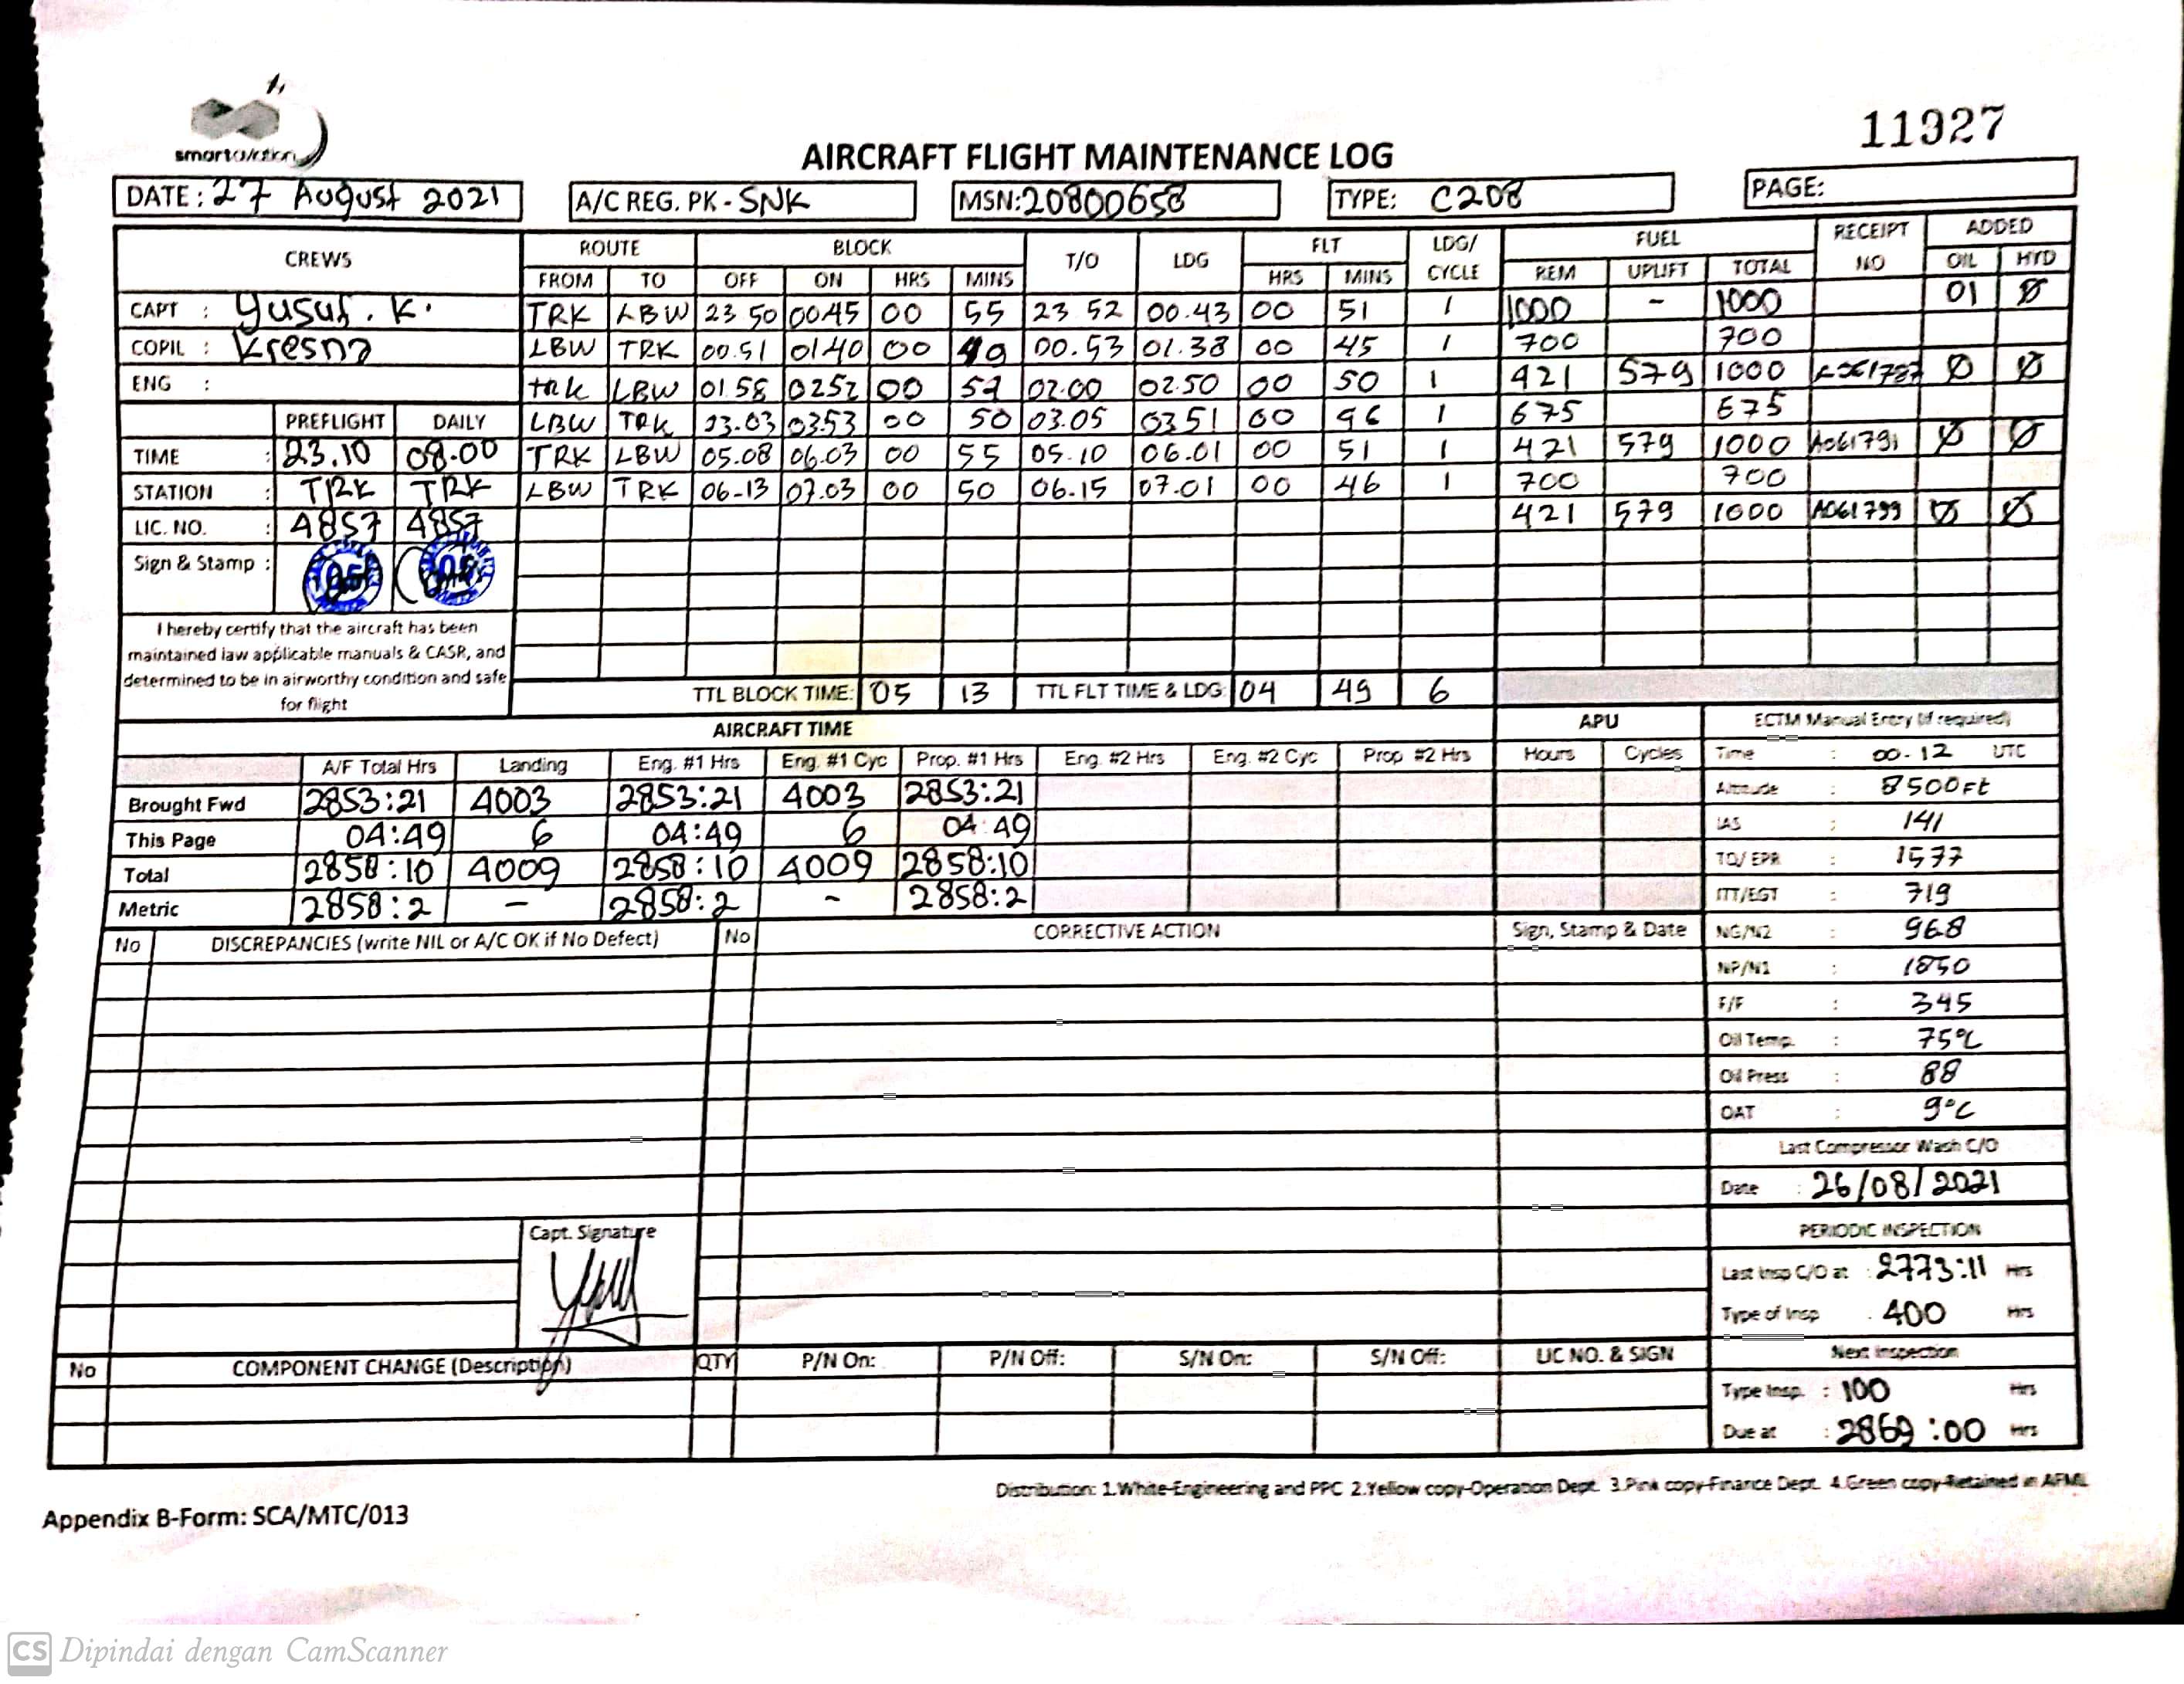 smart aviation
11927
AIRCRAFT FLIGHT MAINTENANCE LOG
DATE: 27 August 2021 A/C REG. PK - SNK MSN: 20800658 TYPE: C208 PAGE:
CREWS ROUTE BLOCK T/O LDG FLT LDG/ CYCLE FUEL RECEIPT NO ADDED
FROM TO OFF ON HRS MINS HRS MINS REM UPLIFT TOTAL OIL HYD
CAPT : Yusuf. K. TRK LBW 23 50 00 45 00 55 23 52 00.43 00 51 1 1000 - 1000 01 Ø
COPIL : Kresna LBW TRK 00.51 01 40 00 49 00.53 01.38 00 45 1 700 700
ENG : TRK LBW 01 58 02 52 00 02.00 02.50 00 50 1 421 579 1000 Ø Ø
PREFLIGHT DAILY LBW TRK 03.53 00 50 03.05 03 51 00 46 1 675 675
TIME : 23.10 08.00 TRK LBW 05.08 06.03 00 55 05.10 06.01 00 51 1 421 579 1000 A061791 Ø Ø
STATION : TRK TRK LBW TRK 06-13 07.03 00 50 06.15 07.01 00 46 1 700 700
LIC. NO. : 4857 4857 421 579 1000 A061799 Ø Ø
Sign & Stamp :
I hereby certify that the aircraft has been
maintained law applicable manuals & CASR, and
determined to be in airworthy condition and safe
for flight
TTL BLOCK TIME: 05 13 TTL FLT TIME & LDG: 04 49 6
AIRCRAFT TIME APU ECTM Manual Entry (if required)
A/F Total Hrs Landing Eng. #1 Hrs Eng. #1 Cyc Prop. #1 Hrs Eng. #2 Hrs Eng. #2 Cyc Prop #2 Hrs Hours Cycles Time : 00-12 UTC
Brought Fwd 2853:21 4003 2853:21 4003 2853:21 Altitude : 8500 Ft
This Page 04:49 6 04:49 6 04:49 IAS : 141
Total 2858:10 4009 2858:10 4009 2858:10 TQ/ EPR : 1577
Metric 2858:2 - 2858:2 - 2858:2 ITT/EGT : 719
No DISCREPANCIES (write NIL or A/C OK if No Defect) No CORRECTIVE ACTION Sign, Stamp & Date NG/N2 : 96.8
NP/N1 : 1850
F/F : 345
Oil Temp. : 75°C
Oil Press : 88
OAT : 9°C
Last Compressor Wash C/O
Date : 26/08/2021
Capt. Signature
PERIODIC INSPECTION
Last Insp C/O at : 2773:11 Hrs
Type of Insp . 400 Hrs
No COMPONENT CHANGE (Description) QTY P/N On: P/N Off: S/N On: S/N Off: LIC NO. & SIGN Next Inspection
Type Insp. : 100 Hrs
Due at : 2869:00 Hrs
Distribution: 1.White-Engineering and PPC 2.Yellow copy-Operation Dept. 3.Pink copy-Finance Dept. 4.Green copy-Retained in AFML
Appendix B-Form: SCA/MTC/013
CS Dipindai dengan CamScanner